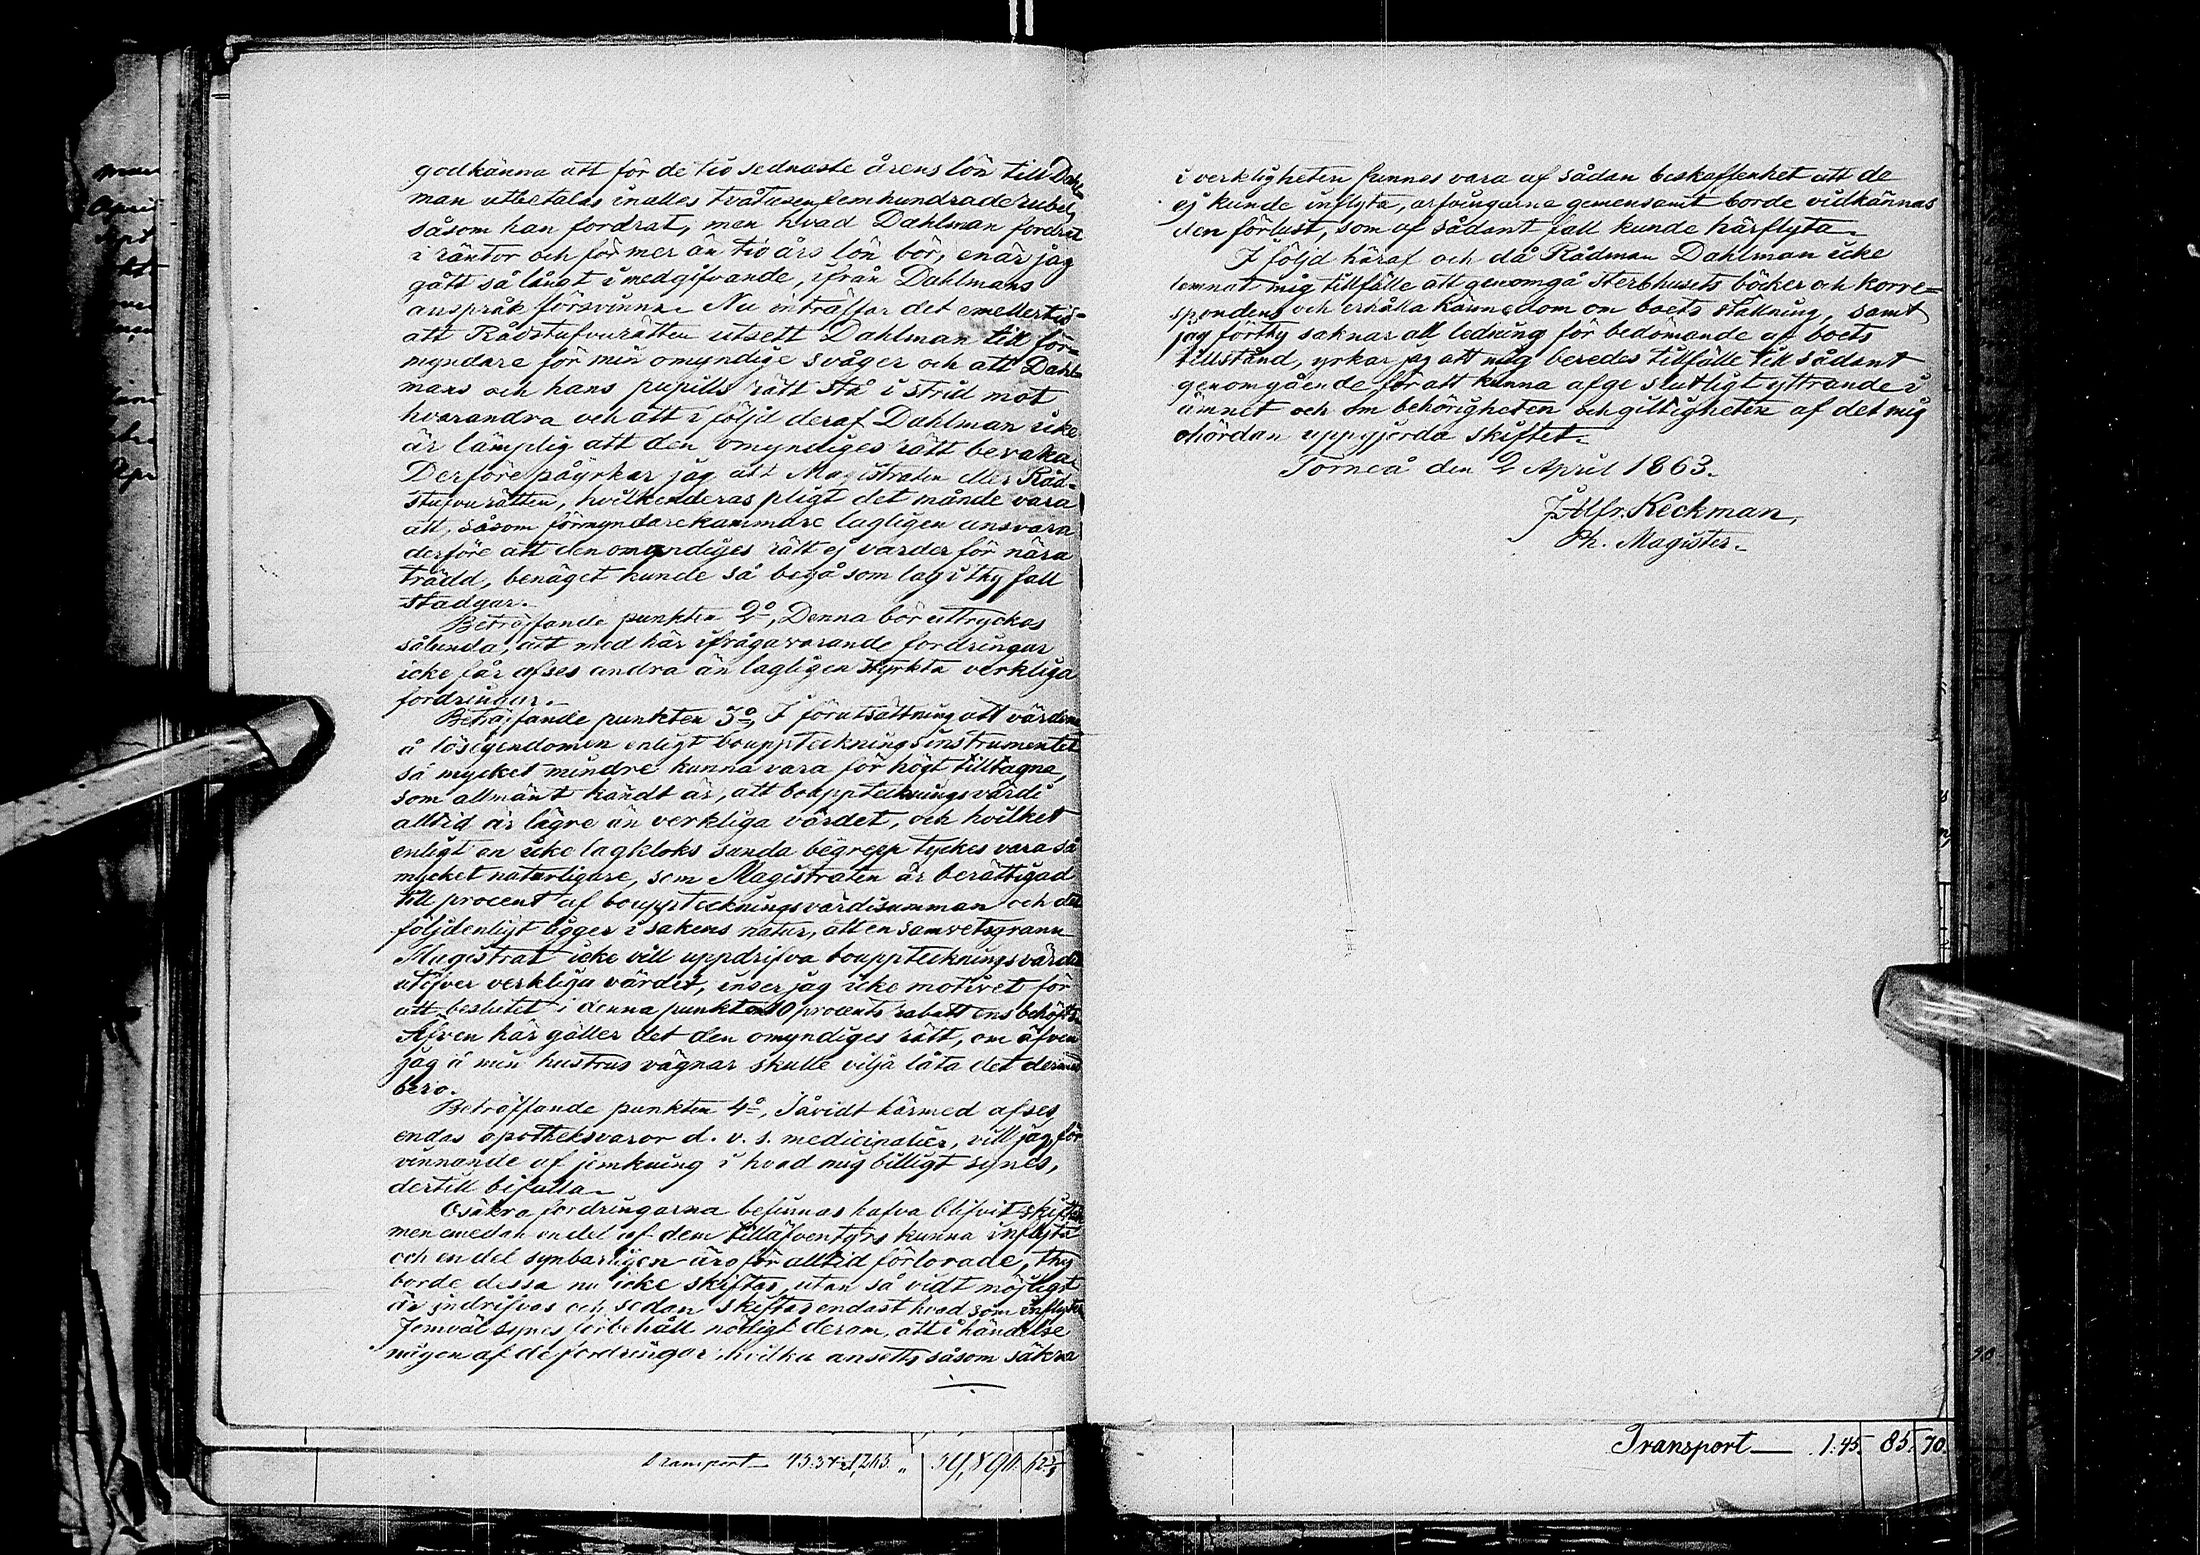 godkänna att för de tio sednaste årens lön till Dahl-
man utbetalas inalles tvåtusenfemhundrade rubel,
såsom han fordrat, men hvad Dahlman fordrat
i räntor och för mer än tio års lön bör, enär jag
gått så långt i medgifvande, ifrån Dahlmans
anspråk försvinna. Nu inträffar det emellertid
att Rådstufvurätten utsett Dahlman till för-
myndare för min omyndige svåger och att Dahl-
mans och hans pupills rätt stå i strid mot
hvarandra och att i följd deraf Dahlman icke
är lämplig att den omyndiges rätt bevaka.
Derföre påyrkar jag att Magistraten eller Råd-
stufvurätten, hvilkenderas pligt det månde vara
att, såsom förmyndarekammare lagligen ansvara
derföre att den omyndiges rätt ej varder för nära
trädd, benäget kunde så begå som lag i thy fall
stadgar.
Beträffande punkten 2o, Denna bör uttryckas
sålunda, att med här ifrågavarande fordringar
icke får afses andra än lagligen styrkta verkliga
fordringar.
Beträffande punkten 3o, I förutsättning att värdena
å lösegendomen enligt bouppteckningsinstrumentet
så mycket mindre kunna vara för högt tilltagna,
som allmänt kändt är, att bouppteckningsvärdi
alltid är lägre än verkliga värdet, och hvilket
enligt en icke lagkloks sunda begrepp tyckes vara så
mycket naturligare, som Magistraten är berättigad
till procent af bouppteckningsvärdisumman och det
följdenligt ligger i sakens natur, att en samvetsgrann
Magistrat icke vill uppdrifva bouppteckningsvärdet
utöfver verkliga värdet, inser jag icke motivet för
att beslutet i denna punkt om 10 procents rabatt ens behöfts.
Äfven här gäller det den omyndiges rätt, om äfven
jag å min hustrus vägnar skulle vilja låta det dermed
bero.
Beträffande punkten 4o, Såvidt härmed afses
endas apotheksvaror d. v. s. medicinalier, vill jag för
vinnande af jemkning i hvad mig billigt synes,
dertill bifalla.
Osäkra fordringarna befinnas hafva blifvit skiftade
men emedan en del af dem tilläfventyrs kunna inflyta
och en del synbarligen äro för alltid förlorade, thy
borde dessa nu icke skiftas, utan så vidt möjligt
är indrifvas och sedan skiftas endast hvad som inflyter
Jemväl synes förbehåll nödigt derom, att i händelse
någon af de fordringar hvilka ansetts såsom säkra
Transport 1,265 „
i verkligheten funnes vara af sådan beskaffenhet att de
ej kunde inflyta, arfvingarne gemensamt borde vidkännas
den förlust, som af sådant fall kunde härflyta.
I följd häraf och då Rådman Dahlman icke
lemnat mig tillfälle att genomgå Sterbhusets böcker och korre=
spondens och erhålla kännedom om boets ställning, samt
jag förthy saknar all ledning för bedömande af boets
tillstånd, yrkar jag att mig beredes tillfälle till sådant
genomgående för att kunna afge slutligt yttrande i
ämnet och om behörigheten och giltigheten af det mig
ohördan uppgjorda skiftet.
Torneå den 2 April 1863.
J. Alfr. Keckman,
Ph. Magister.
Transport 1.45. 85. 70.